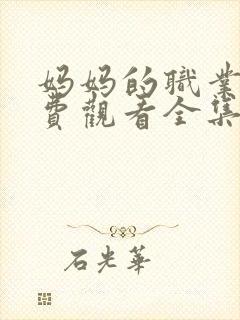 妈妈的职業
費觀看全集
石光華